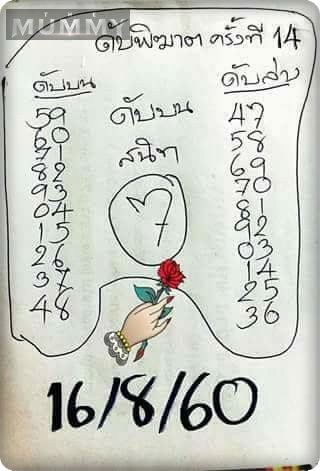 MUMMY
ดับพิฆาต ครั้งที่ 14
ดับบน
59
60
71
82
93
04
15
26
37
48
ดับบน
สนิท
7
ดับล่าง
47
58
69
70
81
92
03
14
25
36
16/8/60